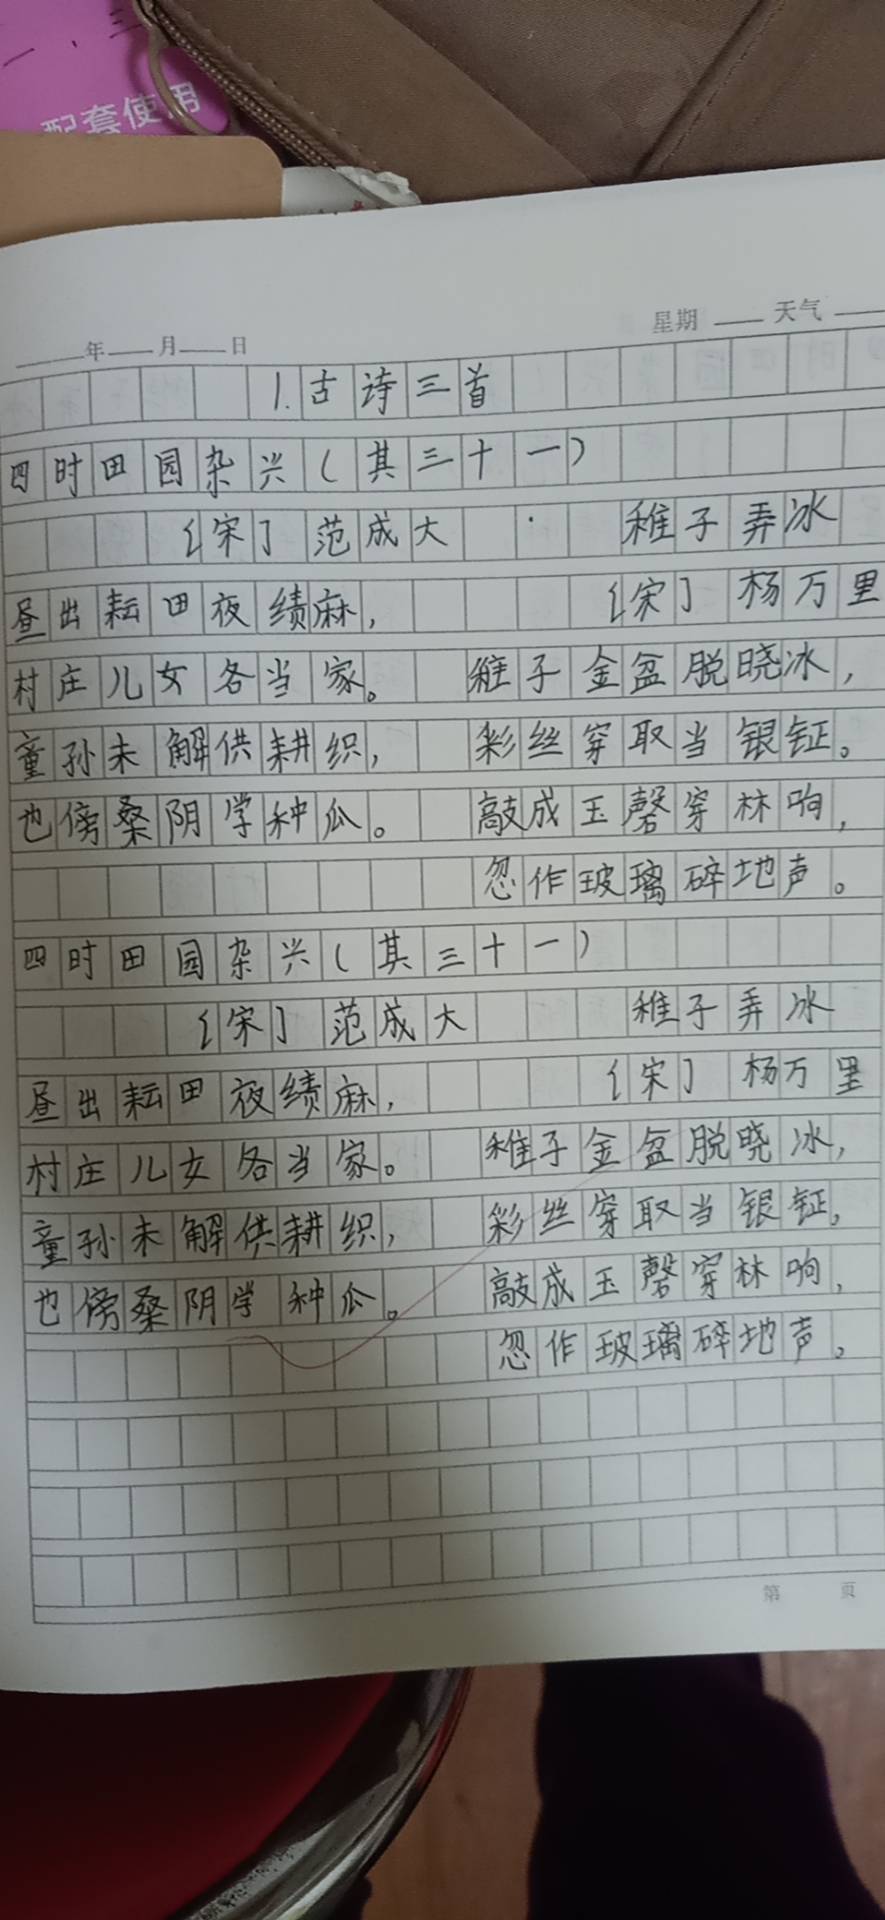 配套使用
年 月 日 星期 天气
1.古诗三首
四时田园杂兴(其三十一)
[宋]范成大 稚子弄冰
昼出耘田夜绩麻, [宋]杨万里
村庄儿女各当家。 稚子金盆脱晓冰,
童孙未解供耕织, 彩丝穿取当银钲。
也傍桑阴学种瓜。 敲成玉磬穿林响,
忽作玻璃碎地声。
四时田园杂兴(其三十一)
[宋]范成大 稚子弄冰
昼出耘田夜绩麻, [宋]杨万里
村庄儿女各当家。 稚子金盆脱晓冰,
童孙未解供耕织, 彩丝穿取当银钲。
也傍桑阴学种瓜。 敲成玉磬穿林响,
忽作玻璃碎地声。
第 页